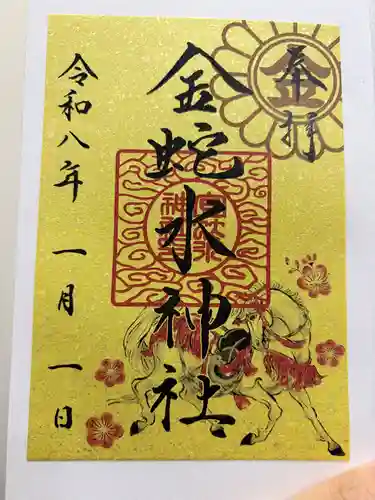 奉拝
金蛇水神社
令和八年 一月 一日
金